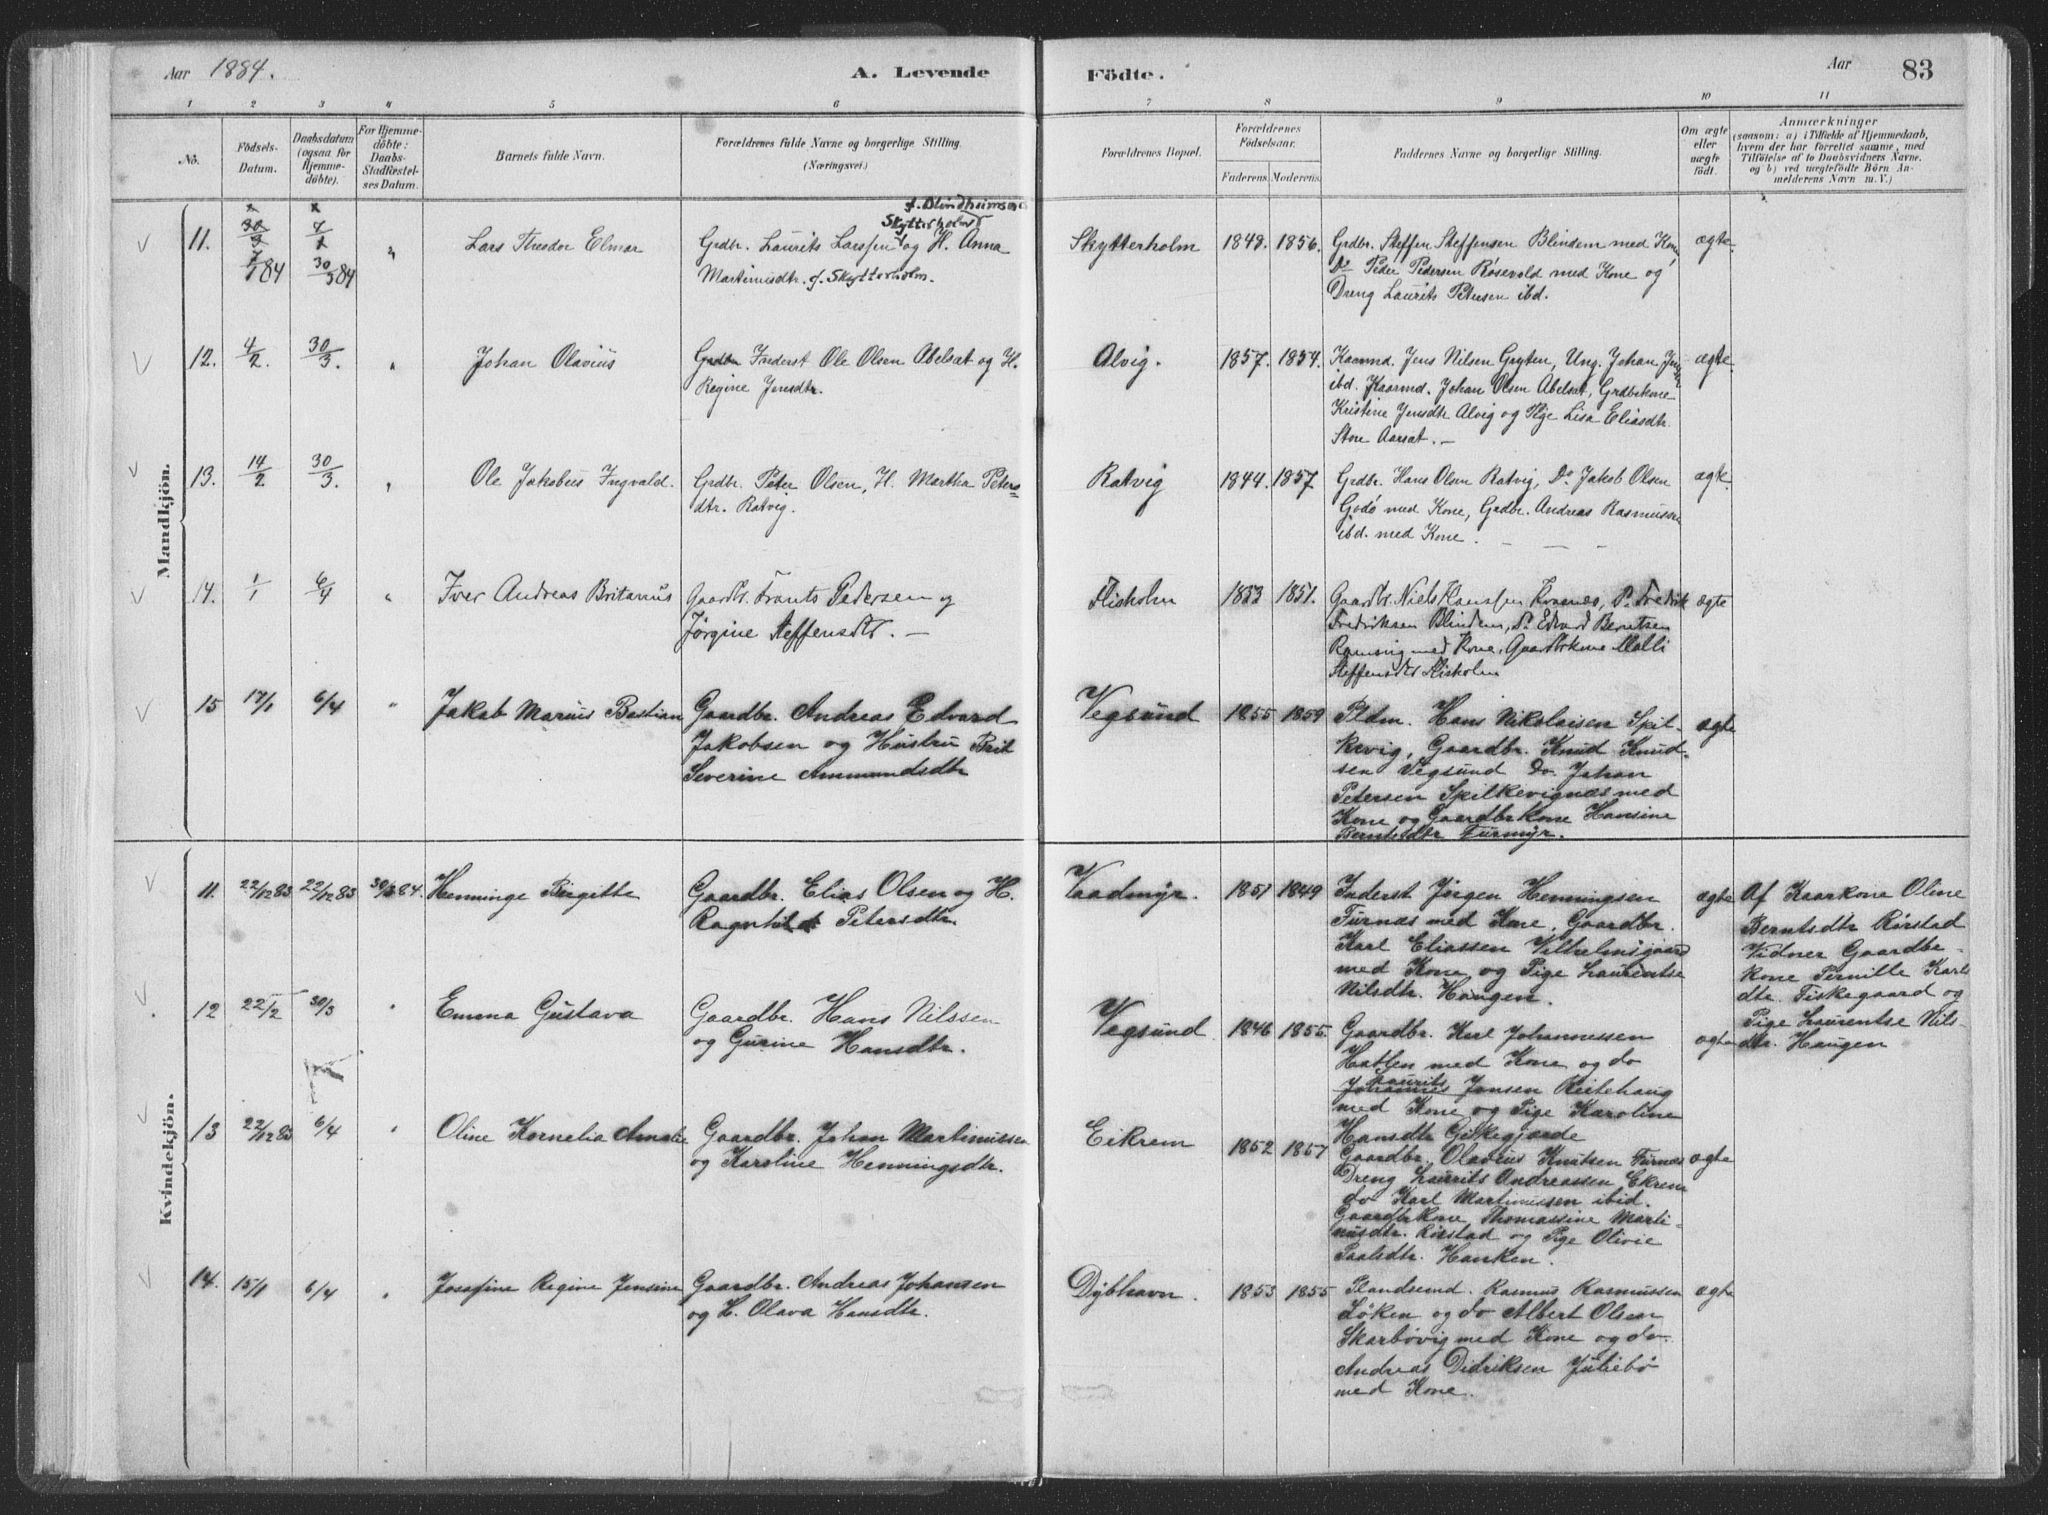 Aar 1884.
A. Levende Födte.
Aar 83
1 2 3 4 5 6 7 8 9 10 11
No.
Födsels-Datum.
Daabsdatum (ogsaa for Hjemmedöbte).
For Hjemmedöbte: Daabs-Stadfæstelses Datum.
Barnets fulde Navn.
Forældrenes fulde Navne og borgerlige Stilling.
(Næringsvei.)
Forældrenes Bopæl.
Forældrenes Födselsaar.
Faderens. Moderens.
Faddernes Navne og borgerlige Stilling.
Om ægte eller uægte födt.
Anmærkninger
(saasom: a) i Tilfælde af Hjemmedaab,
hvem der har forrettet samme, med
Tilföielse af to Daabsvidners Navne.
og b) ved uægtefödte Börn An-
melderens Navn m. V.)
Mandkjön.
f. Blindheim
Skytterholm
11. 7/1 84 30/3 84 " Lars Theodor Elmar
Grdbr. Laurits Larssen og H. Anna
Martinusdtr. f. Skytterholm.
Skytterholm 1849. 1856.
Grdbr. Steffen Steffensen Blindem med Kone
Do Peder Pedersen Røsevold med Kone og
Dreng Laurits Petersen ibd.
ægte
12. 4/2. 30/3. " Johan Olavius
Grdbr Inderst Ole Olsen Abelsæt og H.
Regine Jensdtr.
Alvig. 1857. 1854.
Kaarmd. Jens Nilsen Gryten, Ung. Johan Jensen
ibd. Kaarmd. Johan Olsen Abelsæt, Grdbrkone
Kristine Jensdtr Alvig og Pige Lisa Eliasdtr.
Store Aarsæt. —
ægte
13. 14/2 30/3. " Ole Jakobus Ingvald.
Grdbr. Peter Olsen, H. Martha Peters-
dtr. Ratvig.
Ratvig 1844. 1857
Grdbr. Hans Olsen Ratvig, Do Jakob Olsen
Godø med Kone, Grdbr. Andreas Rasmussen
ibd. med Kone.
ægte.
14. 1/1 6/4 " Iver Andreas Britanus
Gaardbr. Frants Pedersen og
Jørgine Steffensdtr. —
Flisholm 1853 1851.
Gaardbr Niels Hanssen Kvænes, Do Fredrik
Fredriksen Blindem, Do Edvard Berntsen
Ramsvig med Kone, Gaardbrkone Malli
Steffensdtr Flisholm
ægte
15 17/1 6/4 " Jakob Marius Bastian
Gaardbr. Andreas Edvard
Jakobsen og Hustru Brit
Severine Ammundsdtr
Vegsund 1855 1859
Pldm. Hans Nikolaisen Spil-
kevig, Gaardbr. Knud Knud-
sen Vegsund Do. Johan
Petersen Spilkevignæs med
Kone og Gaardbrkone Hansine
Berntsdtr Furmyr.
ægte
Kvindekjön.
11. 22/12 83 22/12 83 30/3 84. Henninge Birgitte
Gaardbr. Elias Olsen og H.
Ragnhild Petersdtr
Vaadmyr. 1851 1849
Inderst Jørgen Henningsen
Furnæs med Kone, Gaardbr.
Karl Eliassen Vilhelmsgaard
med Kone og Pige Laurentse
Nilsdtr. Haugen.
ægte
Af Kaarkone Oline
Berntsdtr Rørstad
Vidner Gaardbr-
kone Pernille Karls
dtr. Fiskegaard og
Pige Laurentse Nils-
dtr. Haugen
12 22/2 30/3 " Emma Gustava
Gaardbr. Hans Nilssen
og Gurine Hansdtr.
Vegsund 1846 1855.
Gaardbr. Karl Johannessen
Hatlen med Kone og do
Laurits
Johannes Jonsen Reitehaug
med Kone og Pige Karoline
Hansdtr Giskegjærde
ægte
13 22/12 83 6/4 " Oline Kornelia Amalie
Gaardbr. Johan Martinussen
og Karoline Henningsdtr.
Eikrem 1852 1857
Gaardbr. Olavius Knutsen Furnæs
Dreng Laurits Andreassen Ekrem
do Karl Martinussen ibid.
Gaardbrkone Thomassine Marti-
nusdtr. Rørstad og Pige Olivie
Paalsdtr. Hanken.
ægte
14. 15/1 6/4 " Josefine Regine Jensine
Gaardbr. Andreas Johansen
og H. Olava Hansdtr.
Dybhavn. 1853 1855
Plandsmd. Rasmus Rasmussen
Løken og do Albert Olsen
Skarbøvig med Kone og do
Andreas Didriksen Juliebø
med Kone.
ægte